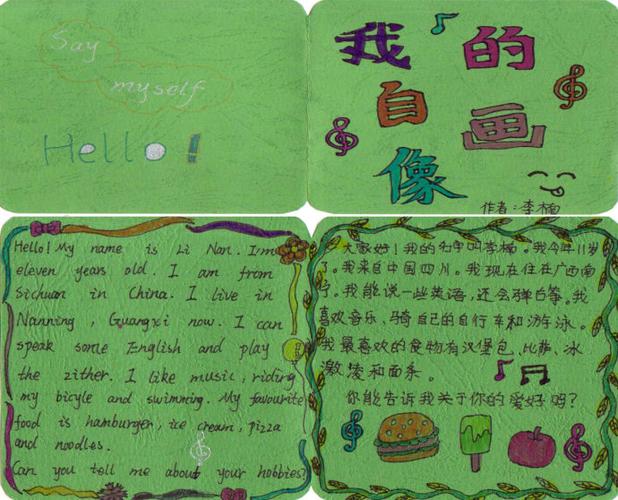 Say
myself
Hello!
我的
自画
像
作者：李楠
Hello! My name is Li Nan. I'm
eleven years old. I am from
Sichuan in China. I live in
Nanning, Guangxi now. I can
speak some English and play
the zither. I like music, riding
my bicyle and swimming. My favourite
food is hamburger, ice cream, pizza
and noodles.
Can you tell me about your hobbies?
大家好！我的名字叫李楠。我今年11岁
了。我来自中国四川。我现在住在广西南
宁。我能说一些英语，还会弹古筝。我
喜欢音乐、骑自己的自行车和游泳。
我最喜欢的食物有汉堡包、比萨、冰
激凌和面条。
你能告诉我关于你的爱好吗？